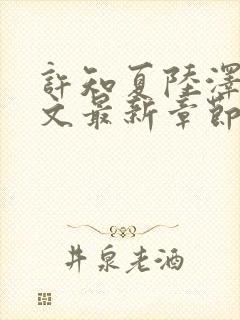 許知夏陸澤
文最新章節
井泉老酒